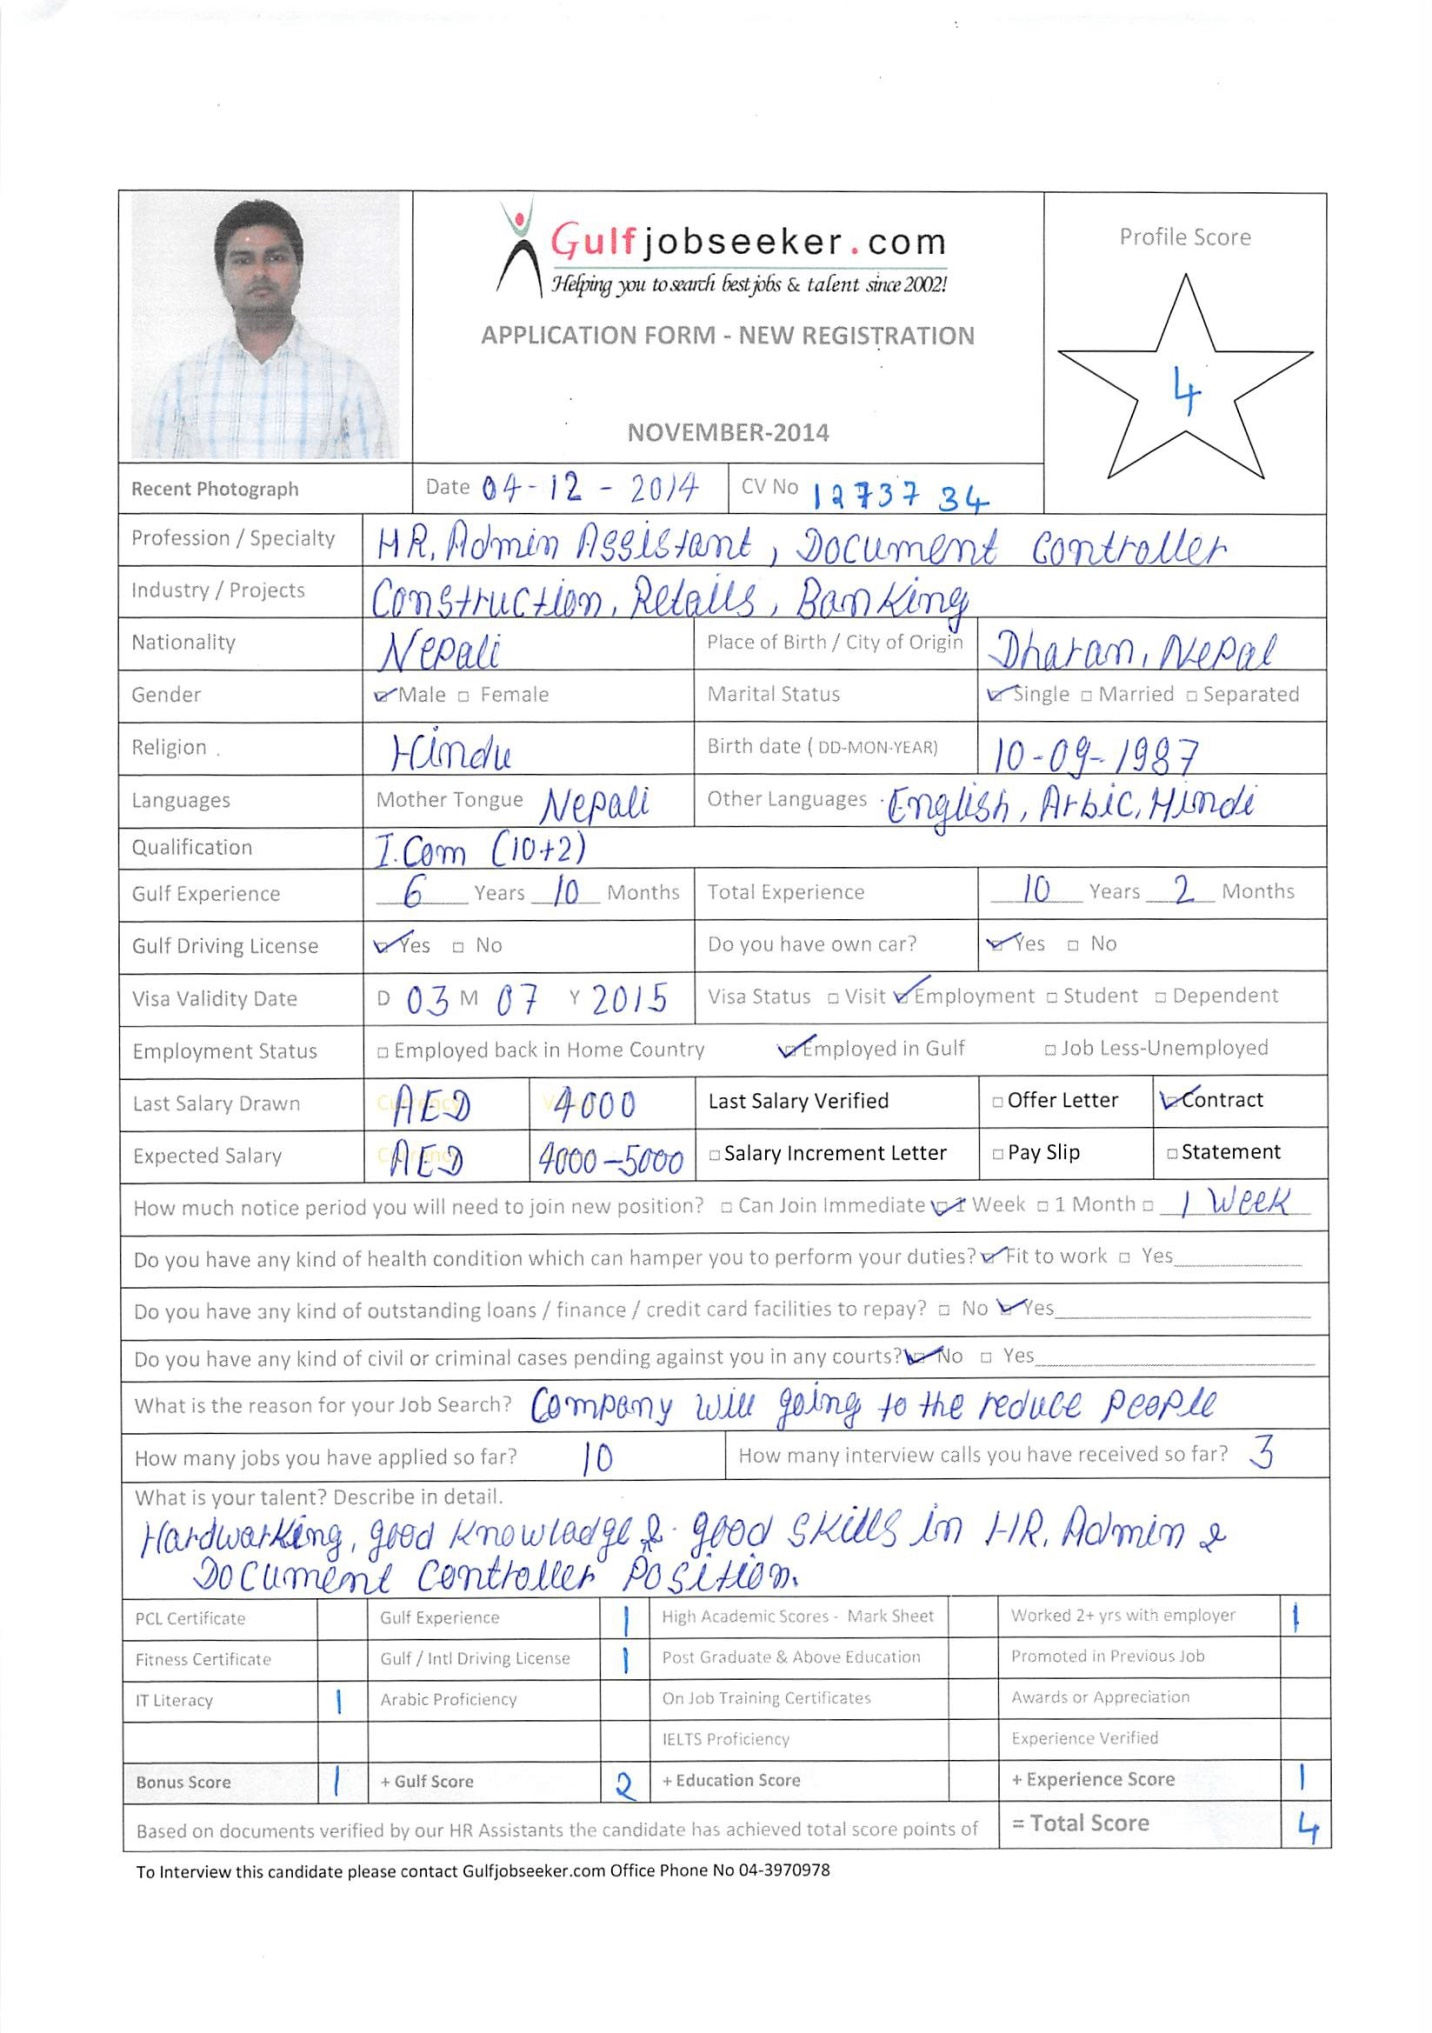 Gulfjobseeker.com
Helping you to search best jobs & talent since 2002!
APPLICATION FORM - NEW REGISTRATION
NOVEMBER-2014
Profile Score
4
Recent Photograph
Date 04-12-2014
CV No 1273734
Profession / Specialty HR, Admin Assistant, Document Controller
Industry / Projects Construction, Retails, Banking
Nationality Nepali Place of Birth / City of Origin Dharan, Nepal
Gender Male Female Marital Status Single Married Separated
Religion Hindu Birth date ( DD-MON-YEAR) 10-09-1987
Languages Mother Tongue Nepali Other Languages English, Arbic, Hindi
Qualification I.Com (10+2)
Gulf Experience 6 Years 10 Months Total Experience 10 Years 2 Months
Gulf Driving License Yes No Do you have own car? Yes No
Visa Validity Date D 03 M 07 Y 2015 Visa Status Visit Employment Student Dependent
Employment Status Employed back in Home Country Employed in Gulf Job Less-Unemployed
Last Salary Drawn AED 4000 Last Salary Verified Offer Letter Contract
Expected Salary AED 4000-5000 Salary Increment Letter Pay Slip Statement
How much notice period you will need to join new position? Can Join Immediate 1 Week 1 Month 1 Week
Do you have any kind of health condition which can hamper you to perform your duties? Fit to work Yes
Do you have any kind of outstanding loans / finance / credit card facilities to repay? No Yes
Do you have any kind of civil or criminal cases pending against you in any courts? No Yes
What is the reason for your Job Search? Company will going to the reduce people
How many jobs you have applied so far? 10 How many interview calls you have received so far? 3
What is your talent? Describe in detail.
Hardworking, good knowladge & good skills in HR, Admin &
Document Controller Position.
PCL Certificate Gulf Experience 1 High Academic Scores - Mark Sheet Worked 2+ yrs with employer 1
Fitness Certificate Gulf / Intl Driving License 1 Post Graduate & Above Education Promoted in Previous Job
IT Literacy 1 Arabic Proficiency On Job Training Certificates Awards or Appreciation
IELTS Proficiency Experience Verified
Bonus Score 1 + Gulf Score 2 + Education Score + Experience Score 1
Based on documents verified by our HR Assistants the candidate has achieved total score points of = Total Score 4
To Interview this candidate please contact Gulfjobseeker.com Office Phone No 04-3970978